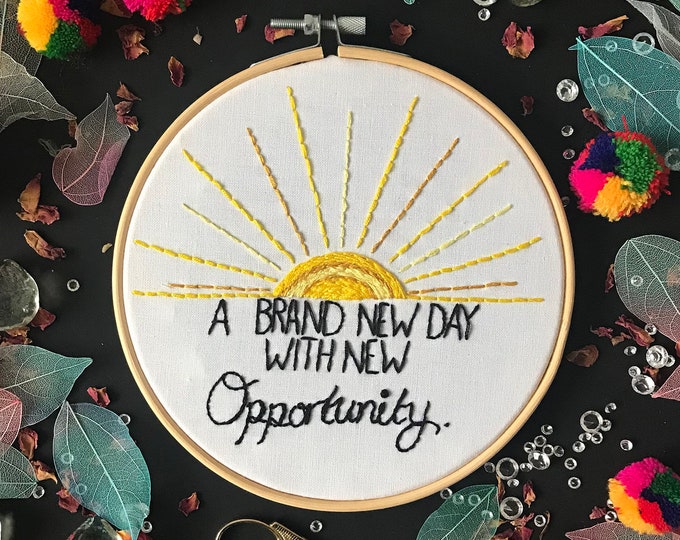 A BRAND NEW DAY
WITH NEW
Opportunity.